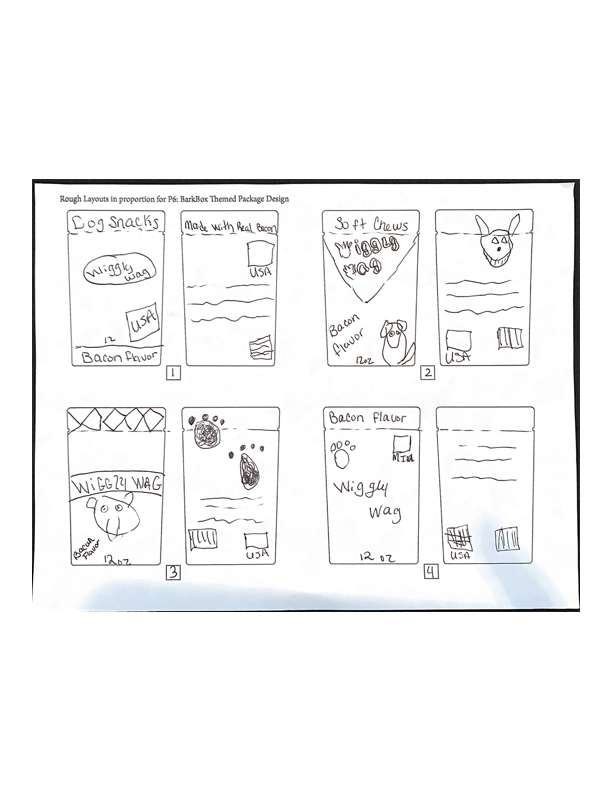 Rough Layouts in proportion for P6: BarkBox Themed Package Design
Dog Snacks
Wiggly
Wag
USA
12
Bacon flavor
Made with Real Bacon
USA
1
Soft Chews
Wiggly
Wag
Bacon
flavor
12oz
USA
2
WiGGly WAG
Bacon
flavor
12 oz
USA
3
Bacon flavor
Wiggly
Wag
12 oz
USA
4